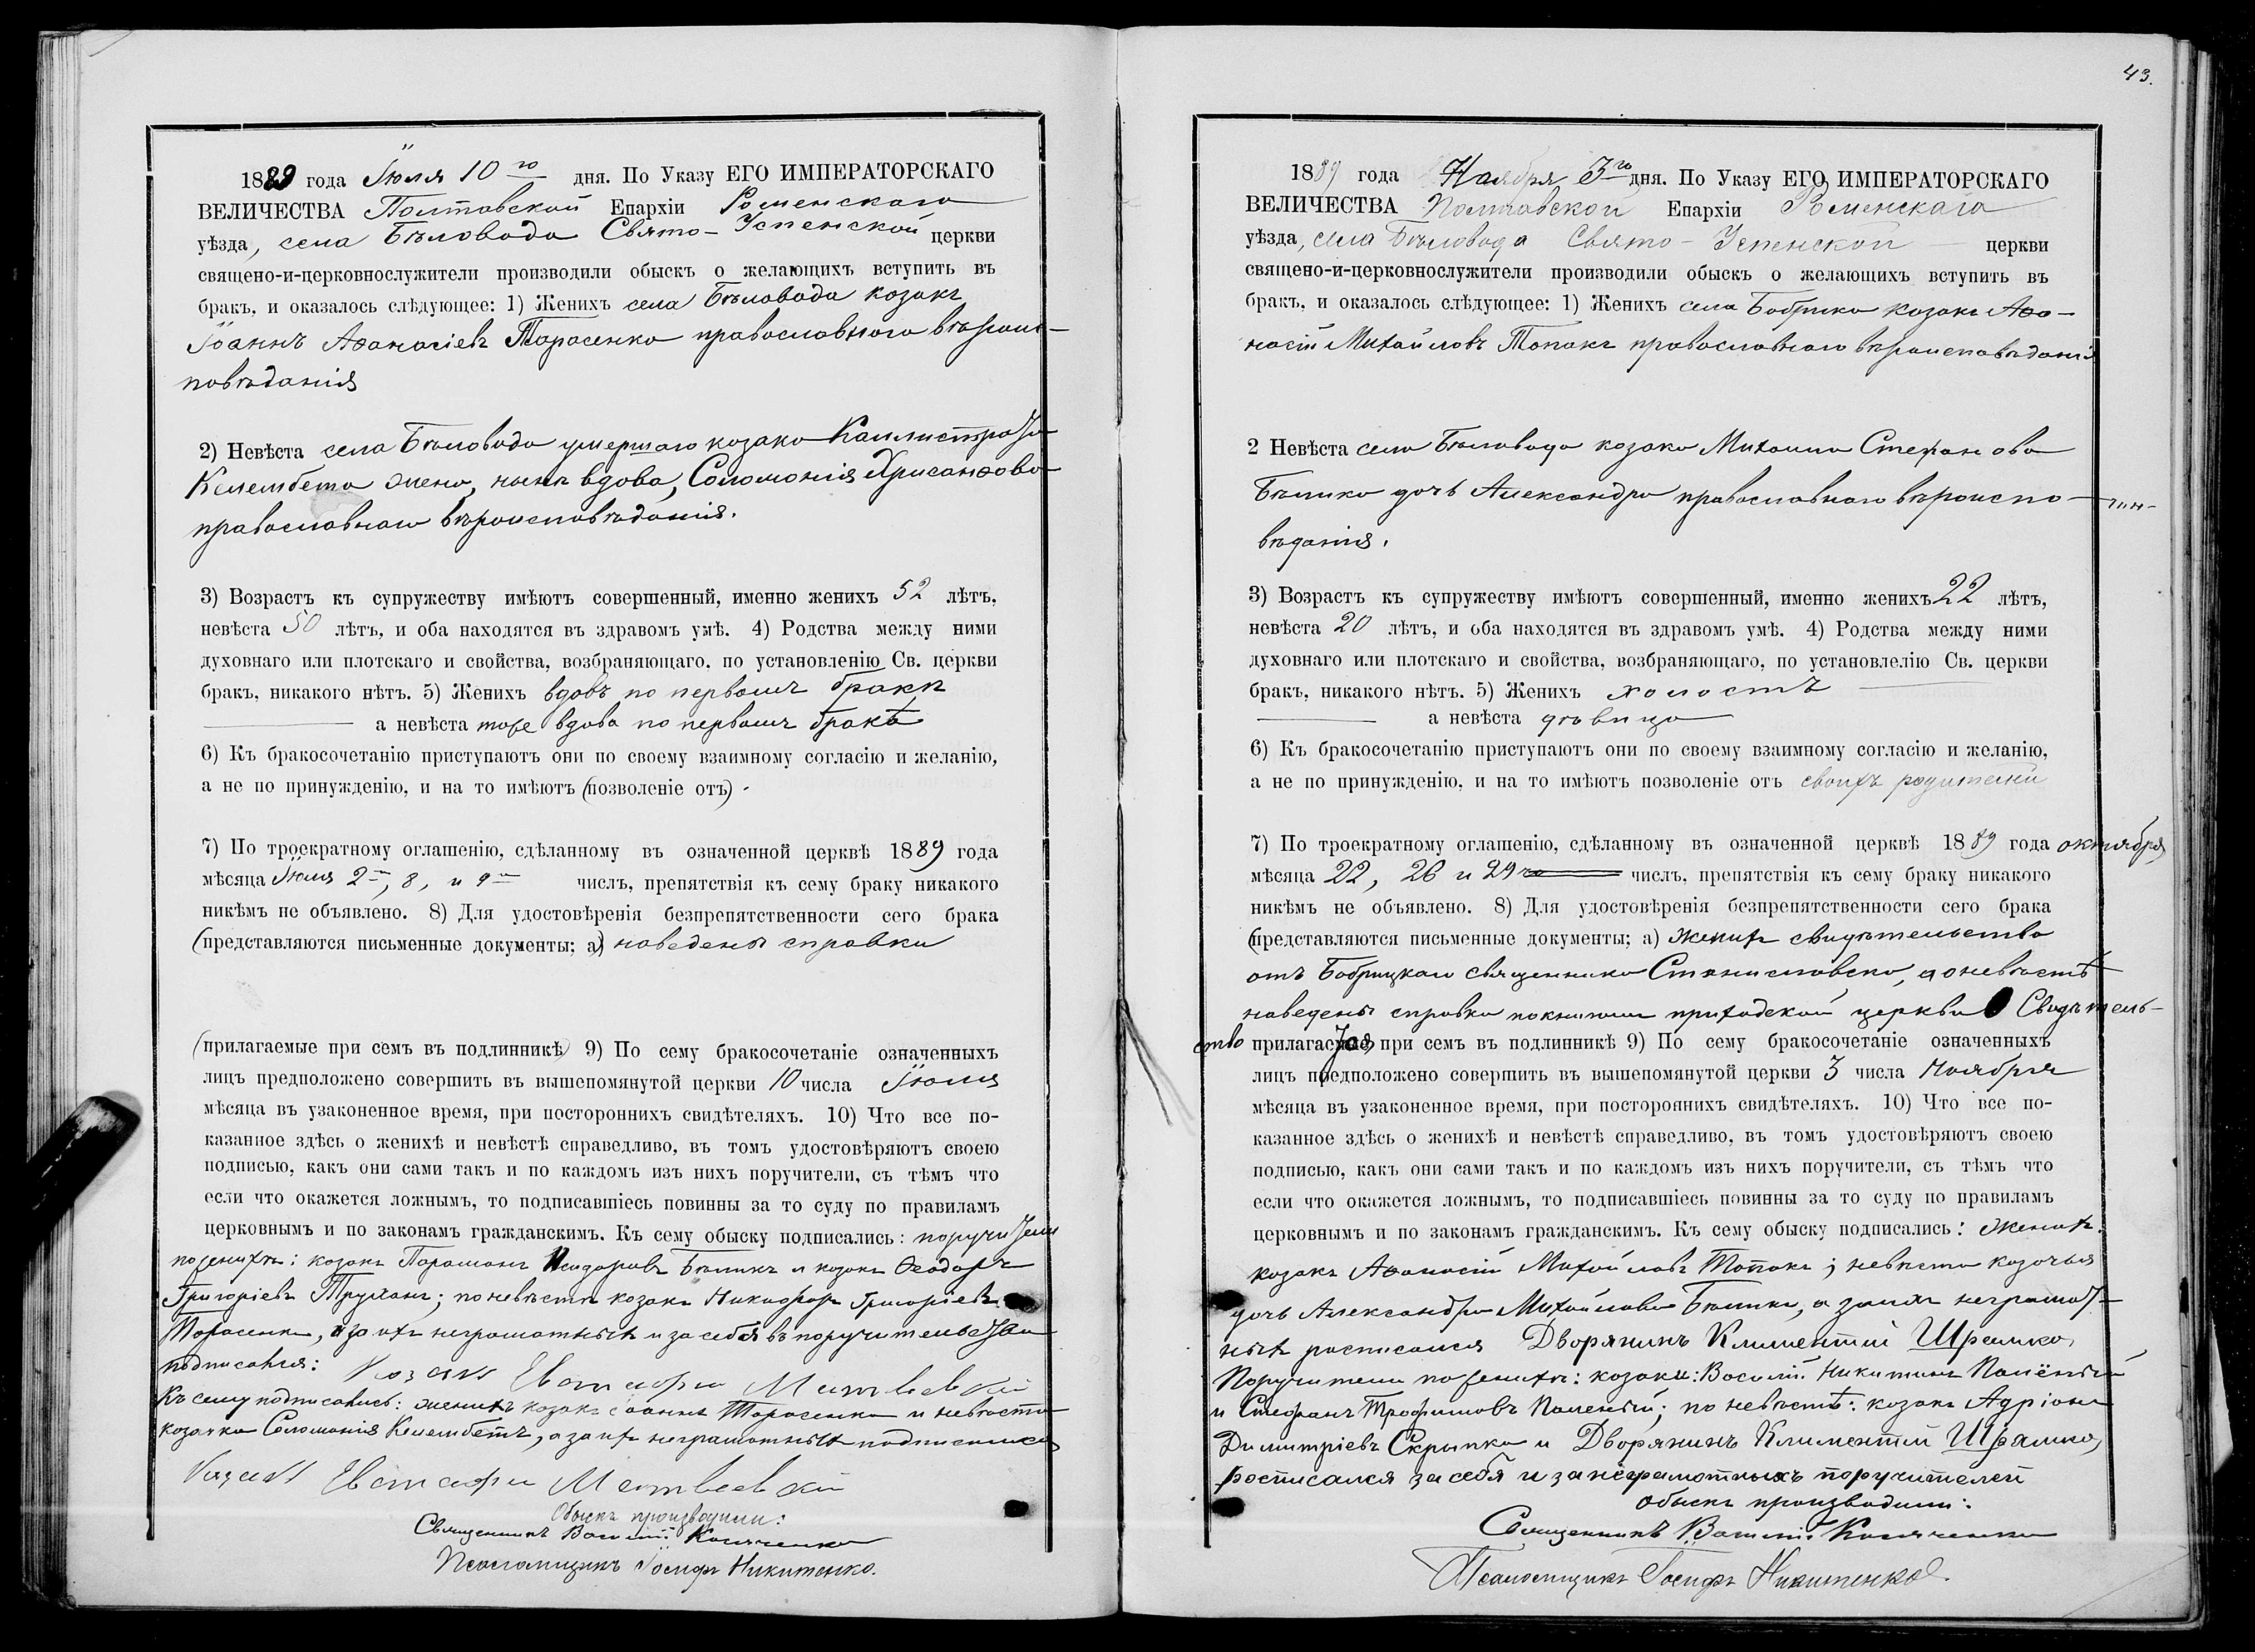 1889 года Іюля 10го дня. По Указу ЕГО ИМПЕРАТОРСКАГО
ВЕЛИЧЕСТВА Полтавской Епархіи Роменскаго
уѣзда, села Бѣловода Свято-Успенской церкви
священо-и-церковнослужители производили обыскъ о желающихъ вступить въ
бракъ, и оказалось слѣдующее: 1) Женихъ села Бѣловода козакъ
Іоаннъ Аѳанасіевъ Тарасенко православного вѣроис-
повѣданія
2) Невѣста села Бѣловода умершаго козака Каллистрата
Келембета жена, нынѣ вдова, Соломонія Хрисанѳова
православнаго вѣроисповѣданія.
3) Возрастъ къ супружеству имѣютъ совершенный, именно женихъ 52 лѣтъ,
невѣста 50 лѣтъ, и оба находятся въ здравомъ умѣ. 4) Родства между ними
духовнаго или плотскаго и свойства, возбраняющаго, по установленію Св. церкви
бракъ, никакого нѣтъ. 5) Женихъ вдовъ по первомъ бракѣ
а невѣста тоже вдова по первомъ бракѣ
6) Къ бракосочетанію приступаютъ они по своему взаимному согласію и желанію,
а не по принужденію, и на то имѣютъ (позволеніе отъ) -
7) По троекратному оглашенію, сдѣланному въ означенной церквѣ 1889 года
мѣсяца Іюля 2го, 8, и 9го числъ, препятствія къ сему браку никакого
никѣмъ не объявлено. 8) Для удостовѣренія безпрепятственности сего брака
(представляются письменные документы; а) наведены справки
(прилагаемые при семъ въ подлинникѣ) 9) По сему бракосочетаніе означенныхъ
лицъ предположено совершить въ вышепомянутой церкви 10 числа Іюля
мѣсяца въ узаконенное время, при постороннихъ свидѣтеляхъ. 10) Что все по-
казанное здѣсь о женихѣ и невѣстѣ справедливо, въ томъ удостовѣряютъ своею
подписью, какъ они сами такъ и по каждомъ изъ нихъ поручители, съ тѣмъ что
если что окажется ложнымъ, то подписавшіесь повинны за то суду по правиламъ
церковнымъ и по законамъ гражданскимъ. Къ сему обыску подписались: поручители
по женихѣ: козакъ Парамонъ Исидоровъ Бѣликъ и козакъ Ѳеодоръ
Григоріевъ Труханъ; по невѣстѣ козакъ Никифоръ Григоріевъ
Тарасенко, а за ихъ неграмотныхъ и за себя въ поручительствѣ
подписался: Козакъ Евстафи Матвеевский
Къ сему подписались: женихъ козакъ Іоаннъ Тарасенко и невѣста
козачка Соломонія Келембетъ, а за ихъ неграмотныхъ подписался
Козакъ Евстафи Матвеевский
Обыскъ производили:
Священникъ Василій
Псаломщикъ Іосифъ Никитенко.
43.
1889 года Ноября 3го дня. По Указу ЕГО ИМПЕРАТОРСКАГО
ВЕЛИЧЕСТВА Полтавской Епархіи Роменскаго
уѣзда, села Бѣловода Свято-Успенской церкви
священо-и-церковнослужители производили обыскъ о желающихъ вступить въ
бракъ, и оказалось слѣдующее: 1) Женихъ села Бобрика козакъ Аѳа-
насій Михайловъ Топакъ православнаго вѣроисповѣданія
2 Невѣста села Бѣловода козака Михаила Стефанова
Бѣлика дочь Александра православнаго вѣроиспо-
вѣданія.
3) Возрастъ къ супружеству имѣютъ совершенный, именно женихъ 22 лѣтъ,
невѣста 20 лѣтъ, и оба находятся въ здравомъ умѣ. 4) Родства между ними
духовнаго или плотскаго и свойства, возбраняющаго, по установлелію Св. церкви
бракъ, никакого нѣтъ. 5) Женихъ холостъ
а невѣста дѣвица
6) Къ бракосочетанію приступаютъ они по своему взаимному согласію и желанію,
а не по принужденію, и на то имѣютъ позволеніе отъ своихъ родителей
7) По троекратному оглашенію, сдѣланному въ означенной церквѣ 1889 года октября
мѣсяца 22, 26 и 29го числъ, препятствія къ сему браку никакого
никѣмъ не объявлено. 8) Для удостовѣренія безпрепятственности сего брака
(представляются письменные документы; а) Женихъ свидѣтельство
отъ Бобрицкаго священника Станиславско, а о невѣстѣ
наведены справки по книгамъ приходской церкви Свидѣтель-
ство прилагается при семъ въ подлинникѣ 9) По сему бракосочетаніе означенныхъ
лицъ предположено совершить въ вышепомянутой церкви 3 числа Ноября
мѣсяца въ узаконенное время, при постороннихъ свидѣтеляхъ. 10) Что все по-
казанное здѣсь о женихѣ и невѣстѣ справедливо, въ томъ удостовѣряютъ своею
подписью, какъ они сами такъ и по каждомъ изъ нихъ поручители, съ тѣмъ что
если что окажется ложнымъ, то подписавшіесь повинны за то суду по правиламъ
церковнымъ и по законамъ гражданскимъ. Къ сему обыску подписались: женихъ
козакъ Аѳанасій Михайловъ Топакъ; невѣста козачья
дочь Александра Михайлова Бѣлика, а за ихъ неграмот-
ныхъ росписался Дворянинъ Климентій Шрамко,
Поручители по женихѣ: козаки: Василій Никитинъ Палёный
и Стефанъ Трофимовъ Паленый; по невѣстѣ: козакъ Адріанъ
Димитріевъ Скрыпка и Дворянинъ Климентій Шрамко,
росписался за себя и за неграмотныхъ поручителей
обыскъ производили:
Священникъ Василій
Псаломщикъ Іосифъ Никитенко.